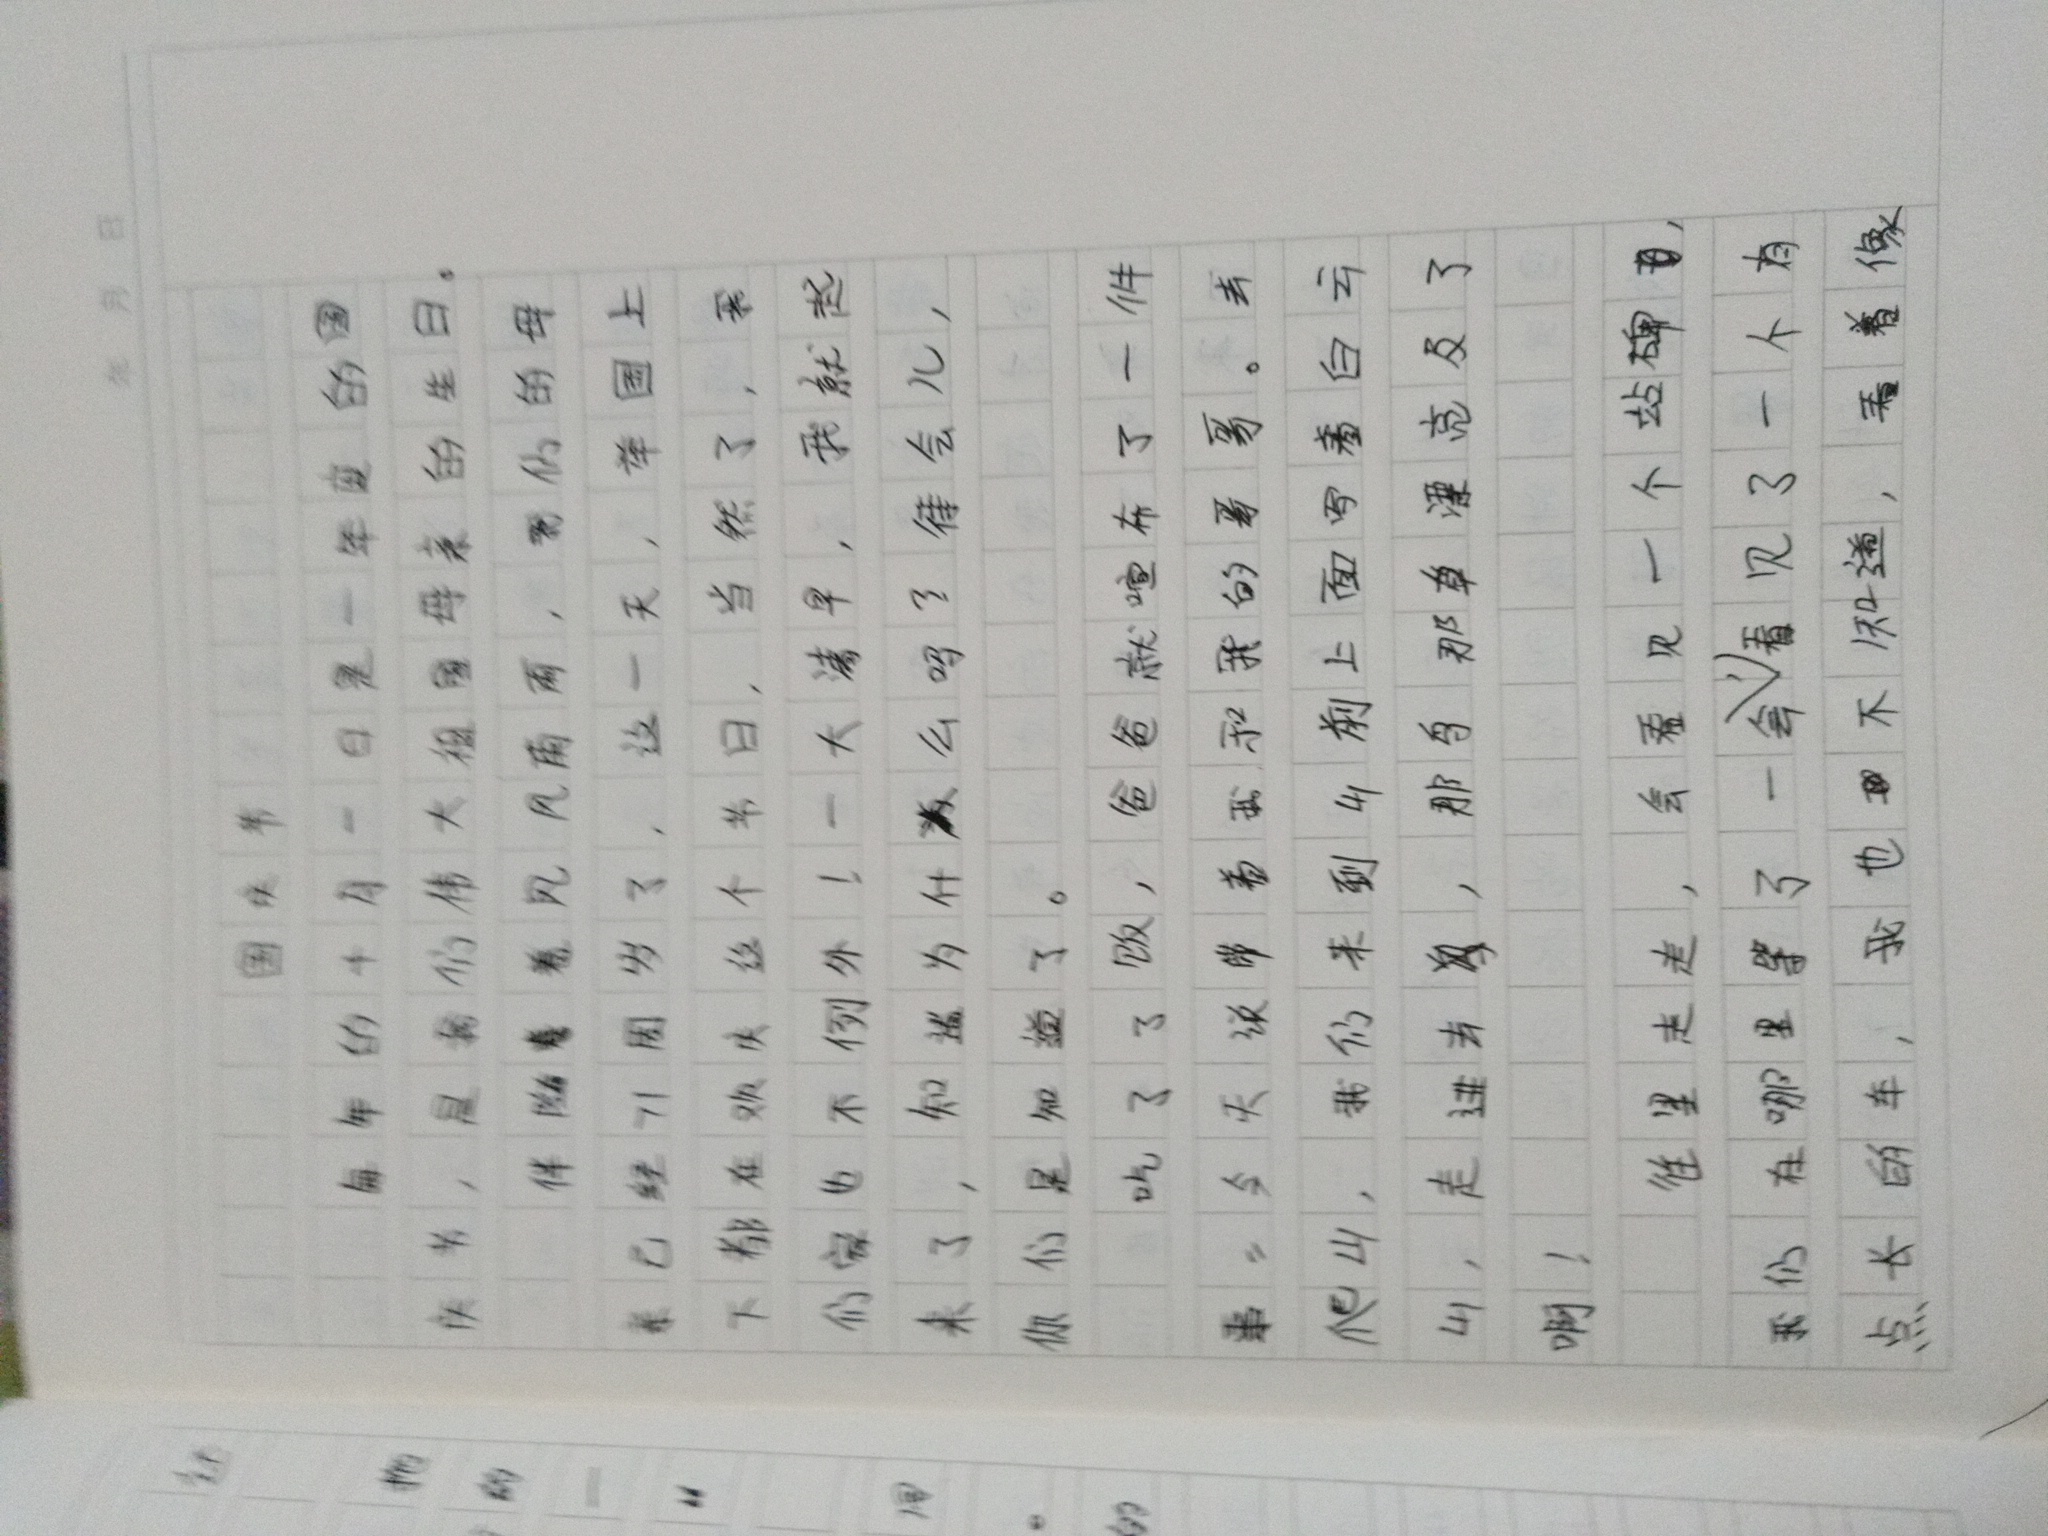 年 月 日
国庆节
每年的十月一日是一年一度的国
庆节，是我们伟大祖国母亲的生日。
伴随着风风雨雨，我们的母
亲已经71周岁了，这一天，举国上
下都在欢庆这个节日，当然了，我
们家也不例外！一大清早，我就起
来了，知道为什么吗？待会儿，
你们是知道了。
吃了了饭，爸爸就喧布了一件
事“今天说带着我和我的哥哥。去
爬山，我们来到山前上面写着白云
山，走进去，那鸟那草漂亮及了
啊！
往里走走，会看见一个站碑，
我们在哪里等了一会儿看见了一个有
点长的车，我也不知道，看着像